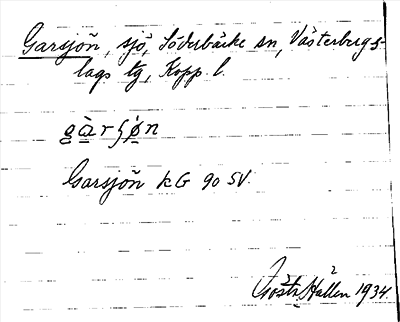 Garsjön, sjö, Söderbärke sn, Västerbergs-
lags tg, Kopp. l.
gàrʃön
Garsjön kG 90 SV.
Gösta Hallen 1934.